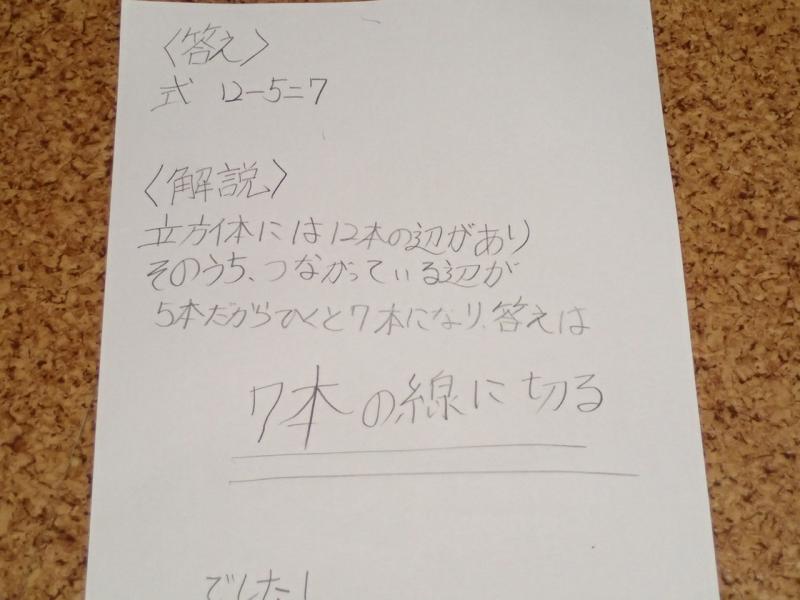 〈答え〉
式 12-5=7
〈解説〉
立方体には12本の辺があり
そのうち、つながっている辺が
5本だからひくと7本になり、答えは
7本の線に切る
でした!